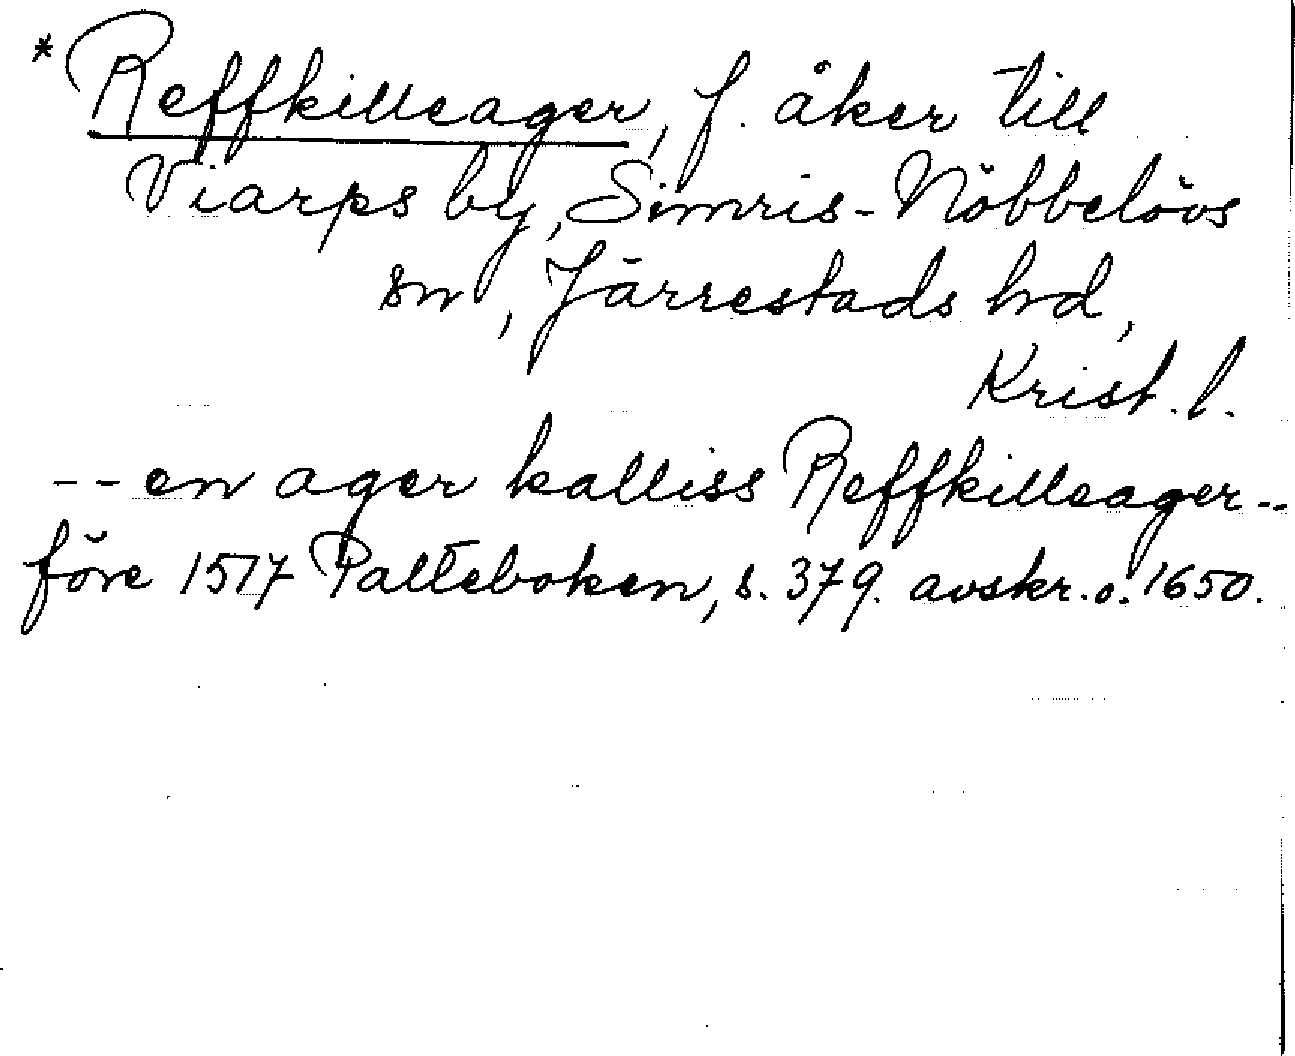 * Reffkilleager, f. åker till
Viarps by, Simris-Nöbbelövs
sn, Järrestads hd,
Krist. l.
-- en ager kalliss Reffkilleager --
före 1517 Palteboken, s. 379. avskr. o. 1650.